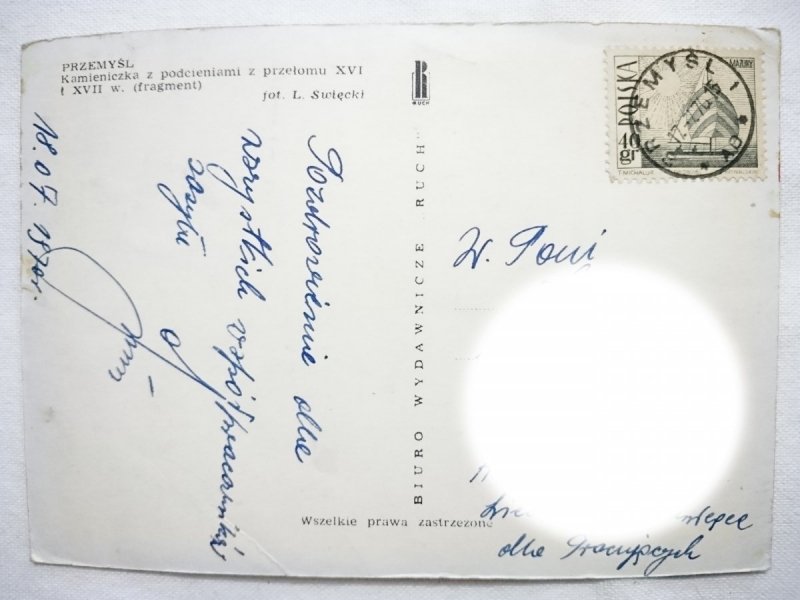 PRZEMYŚL
Kamieniczka z podcieniami z przełomu XVI
i XVII w. (fragment)
fot. L. Święcki
RUCH
POLSKA
40
gr
MAZURY
T. MICHALUK
PRZEMYŚL 1
18.07.1970r.
Pozdrowienia dla
wszystkich współpracowników
zasyła
BIURO WYDAWNICZE RUCH
W. Pani
dla Pracujących
Wszelkie prawa zastrzeżone